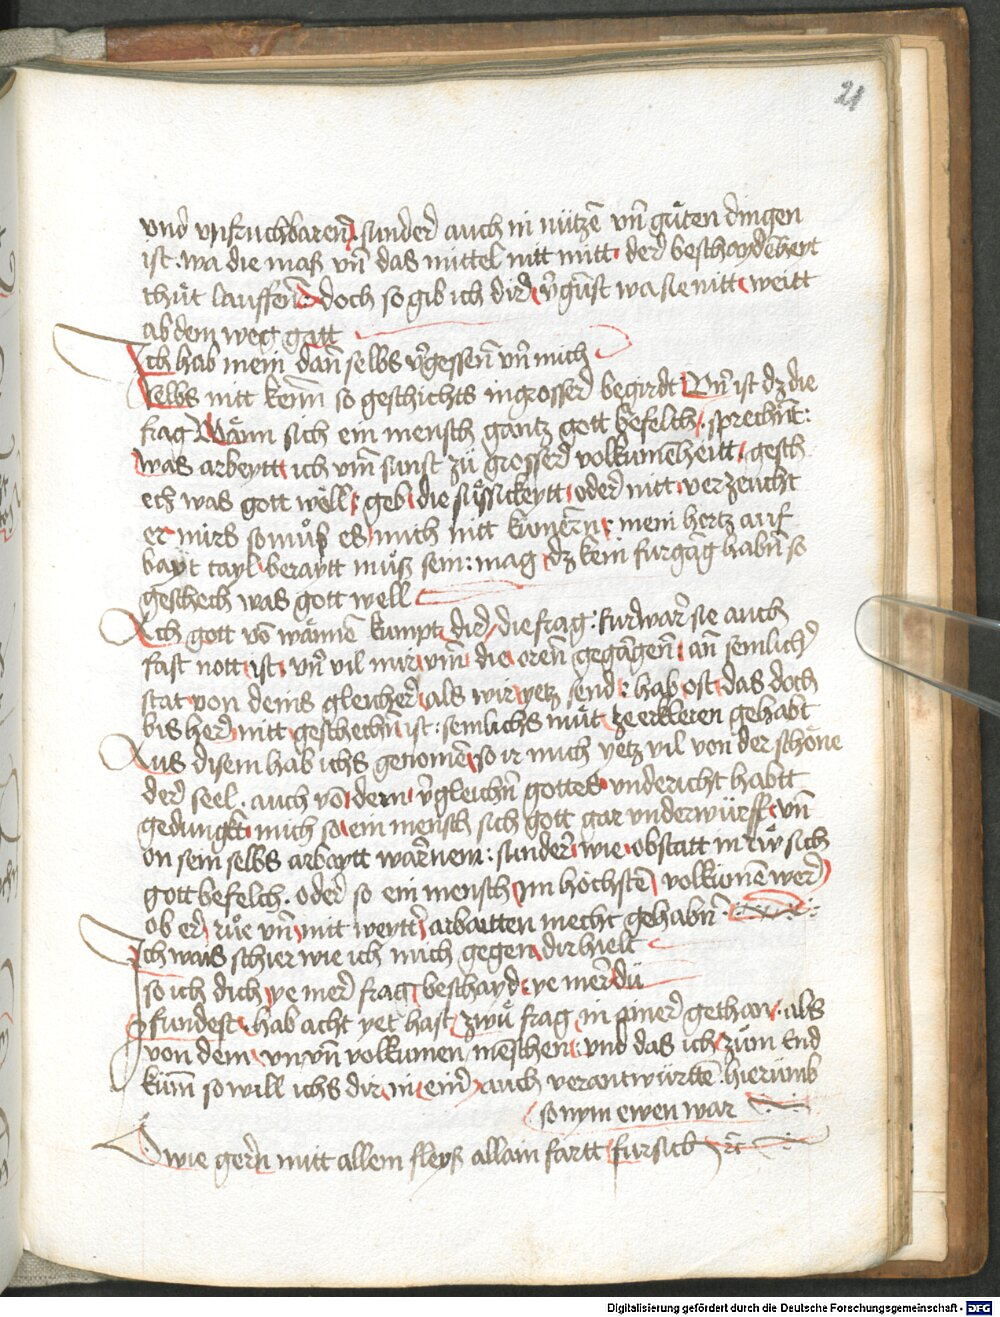 21
vnd vnfruchbaren sunder auch in nützē vn̄ gůten dingen
ist. wa die maß vn̄ das mittel nitt mitt der beschaydēheyt
thůt lauffen doch so gib ich dir v̄gunst wa sie nitt weitt
ab dem weg gatt
Ich hab mein dan̄ selbs v̄gessen vn̄ mich
selbs nitt ken̄ so geschichts in grosser begirdt Vn̄ ist dz die
frag Wan̄n sich ein mensch gantz gott befelch sprechn̄t:
was arbeytt ich vm̄ sunst zů grosser volkumēheitt gesch
ech was gott wöll geb die sůssickeytt oder nitt verzeücht
er mirs so můß es mich nitt mein hertz auf
bayt tayl beraytt můß sein: mag dz kein furgāg habn̄ so
geschech was gott well
Ach gott vō wannē kumpt dir die frag: furdwar sie auch
fast nott ist vn̄ vil mir vm̄ die oren gegāgen an semlicher
stat von deins gleicher als wir yetz send hab ost das doch
bis her nitt geschechn̄ ist: semlichs můt ze erkleren gehabt
Aus disem hab ichs genomē so ir mich yetz vil von der schöne
der seel. auch vō dem v̄gleichn̄ gottes vndericht habtt
gedunckt mich so ein mensch sich gott gar vnderwürff vn̄
on sein selbs arbaytt warnem: sunder wie obstatt in růw sich
gott befelch. oder so ein mensch im höchstē volkumēē werd
ob er růe vn̄ mit weytter arbaitten mecht gehabn̄
Ich wais schier wie ich mich gegen dir hielt
so ich dich ye mer frag beschayd ye mer dü
fundest hab acht yet hast zwů frag in ainer gethon als
von dem vn̄ volkumen menschen vnd das ich zům end
kum̄ so will ichs dir in ein auch verantwürttē hierumb
so nym ewen war
O wie gern mitt allem fleyß allain fartt fursich
Digitalisierung gefördert durch die Deutsche Forschungsgemeinschaft - DFG